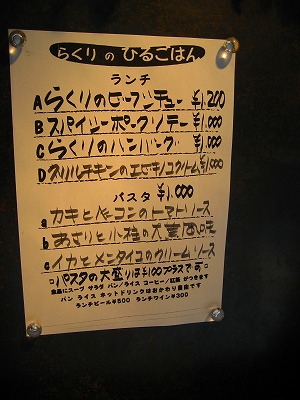 らくりの ひるごはん
ランチ
A らくりのビーフシチュー ¥1,200
B スパイシーポークソテー ¥1,000
C らくりのハンバーグ ¥1,000
D グリルチキンのエビキノコクリーム ¥1,000
パスタ ¥1,000
a カキとベーコンのトマトソース
b あさりと小柱の大葉風味
c イカとメンタイコのクリームソース
パスタの大盛りは¥100プラスです
全品にスープ サラダ パン/ライス コーヒー/紅茶 がつきます
パン ライス ホットドリンクはおかわり自由です
ランチビール¥500 ランチワイン¥300